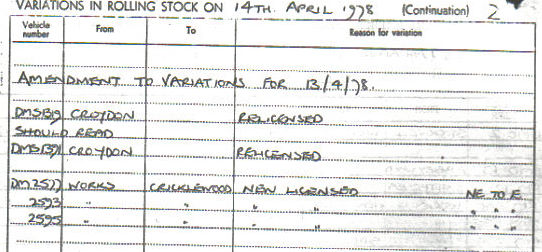 VARIATIONS IN ROLLING STOCK ON 14TH. APRIL 1978 (Continuation) 2
Vehicle number From To Reason for variation
AMENDMENT TO VARIATIONS FOR 13/4/78.
CROYDON RELICENSED
SHOULD READ
DMS1371 CROYDON RELICENSED
DM2577 WORKS CRICKLEWOOD NEW LICENSED NE TO E
2593 " " " " " " "
2595 " " " " " " "